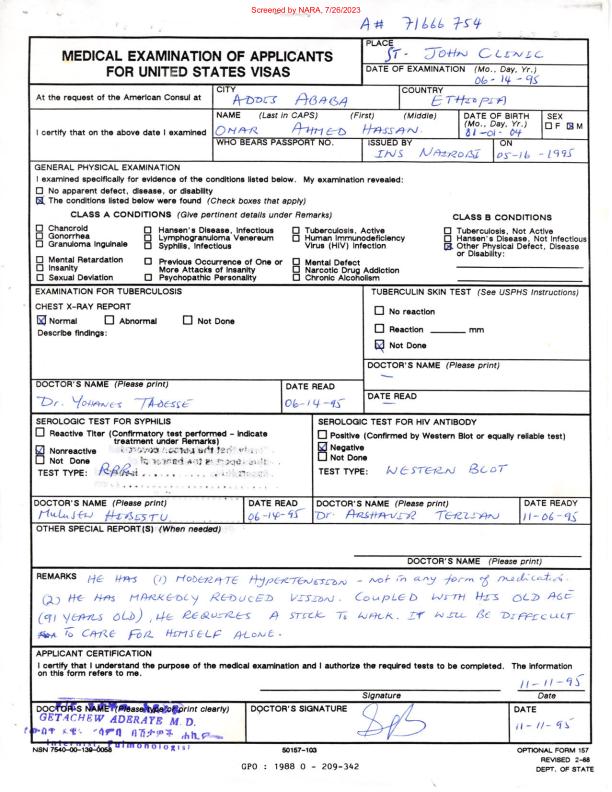 Screened by NARA, 7/26/2023
A# 71666 754
MEDICAL EXAMINATION OF APPLICANTS
FOR UNITED STATES VISAS
PLACE
ST. JOHN CLINIC
DATE OF EXAMINATION (Mo., Day, Yr.)
06-14-95
At the request of the American Consul at
CITY
ADDIS ABABA
COUNTRY
ETHIOPIA
I certify that on the above date I examined
NAME (Last in CAPS) (First) (Middle)
OMAR AHMED HASSAN.
DATE OF BIRTH
(Mo., Day, Yr.)
81-01-04
SEX
F M
WHO BEARS PASSPORT NO.
ISSUED BY
INS NAIROBI
ON
05-16-1995
GENERAL PHYSICAL EXAMINATION
I examined specifically for evidence of the conditions listed below. My examination revealed:
No apparent defect, disease, or disability
The conditions listed below were found (Check boxes that apply)
CLASS A CONDITIONS (Give pertinent details under Remarks)
Chancroid
Gonorrhea
Granuloma Inguinale
Hansen's Disease, Infectious
Lymphogranuloma Venereum
Syphilis, Infectious
Tuberculosis, Active
Human Immunodeficiency
Virus (HIV) Infection
Mental Retardation
Insanity
Sexual Deviation
Previous Occurrence of One or
More Attacks of Insanity
Psychopathic Personality
Mental Defect
Narcotic Drug Addiction
Chronic Alcoholism
CLASS B CONDITIONS
Tuberculosis, Not Active
Hansen's Disease, Not Infectious
Other Physical Defect, Disease
or Disability:
EXAMINATION FOR TUBERCULOSIS
CHEST X-RAY REPORT
Normal Abnormal Not Done
Describe findings:
DOCTOR'S NAME (Please print)
Dr. YOHANES TADESSE
DATE READ
06-14-95
TUBERCULIN SKIN TEST (See USPHS Instructions)
No reaction
Reaction mm
Not Done
DOCTOR'S NAME (Please print)
DATE READ
SEROLOGIC TEST FOR SYPHILIS
Reactive Titer (Confirmatory test performed - indicate
treatment under Remarks)
Nonreactive
Not Done
TEST TYPE: RPR
DOCTOR'S NAME (Please print)
DATE READ
06-14-95
SEROLOGIC TEST FOR HIV ANTIBODY
Positive (Confirmed by Western Blot or equally reliable test)
Negative
Not Done
TEST TYPE: WESTERN BLOT
DOCTOR'S NAME (Please print)
Dr. ARSHAVIR TERZIAN
DATE READY
11-06-95
OTHER SPECIAL REPORT(S) (When needed)
DOCTOR'S NAME (Please print)
REMARKS HE HAS (1) MODERATE HYPERTENSION - not in any form of medication.
(2) HE HAS MARKEDLY REDUCED VISION. COUPLED WITH HIS OLD AGE
(91 YEARS OLD), HE REQUIRES A STICK TO WALK. IT WILL BE DIFFICULT
TO CARE FOR HIMSELF ALONE.
APPLICANT CERTIFICATION
I certify that I understand the purpose of the medical examination and I authorize the required tests to be completed. The information
on this form refers to me.
11-11-95
Signature
Date
DOCTOR'S NAME (Please type or print clearly)
GETACHEW ADERAYE M.D.
Internist, Pulmonologist
DOCTOR'S SIGNATURE
DATE
11-11-95
NSN 7540-00-139-0058
50157-103
OPTIONAL FORM 157
REVISED 2-88
DEPT. OF STATE
GPO : 1988 O - 209-342